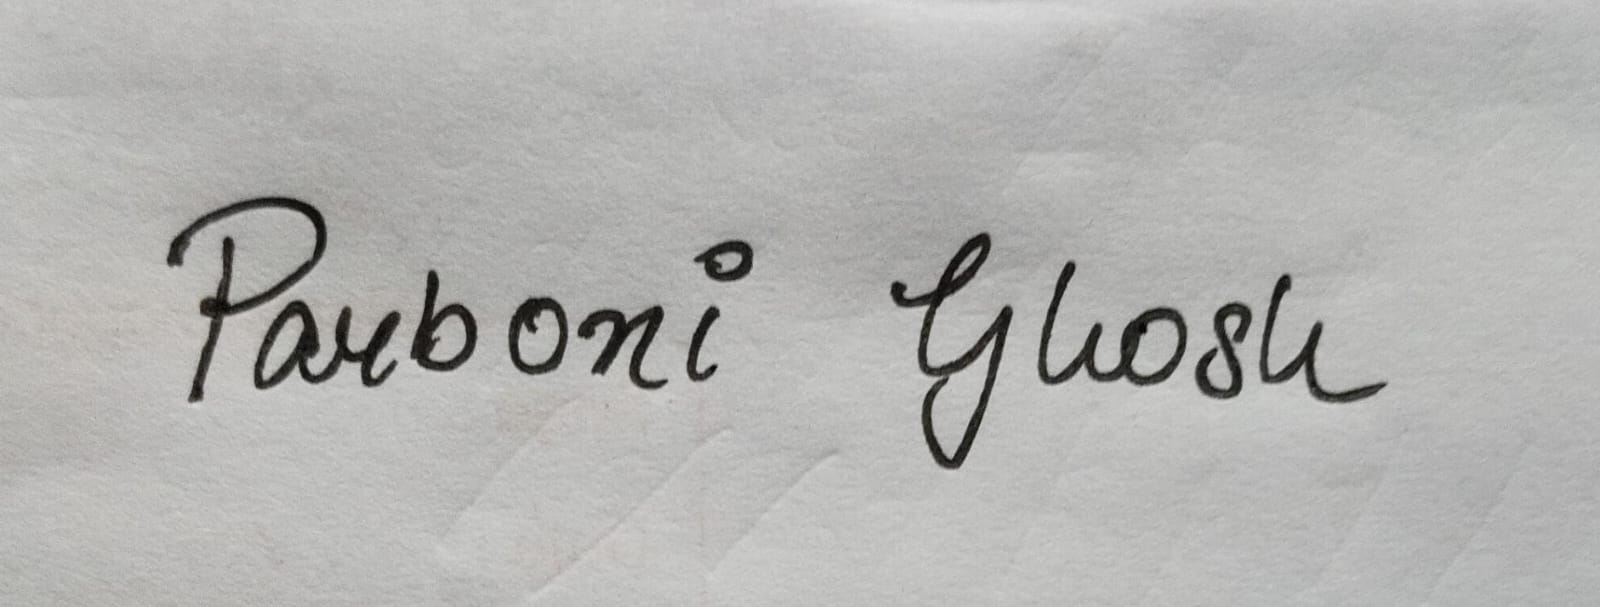 Parboni Ghosh